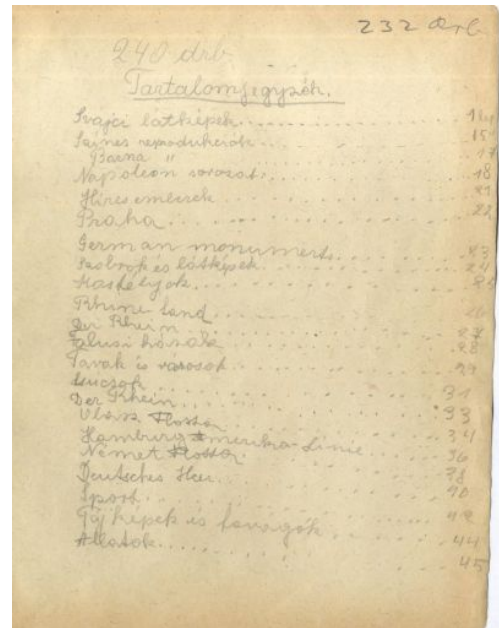 232 drb
240 drb
Tartalomjegyzék.
Svajci látképek
Szines reprodukciók 15
Barna "  17
Napoleon sorozat 18
Hires emberek 21
Praha 22
German monuments 23
Szobrok és látképek 24
Kastélyok
Rhine land 26
Der Rhein
Falusi házak 28
Tavak és városok 29
Der Rhein 31
Olasz Flotta 33
Hamburg Amerika Linie 34
Német Flotta 36
Deutsches Heer 38
Sport 40
Tájképek és 42
Állatok 44
45